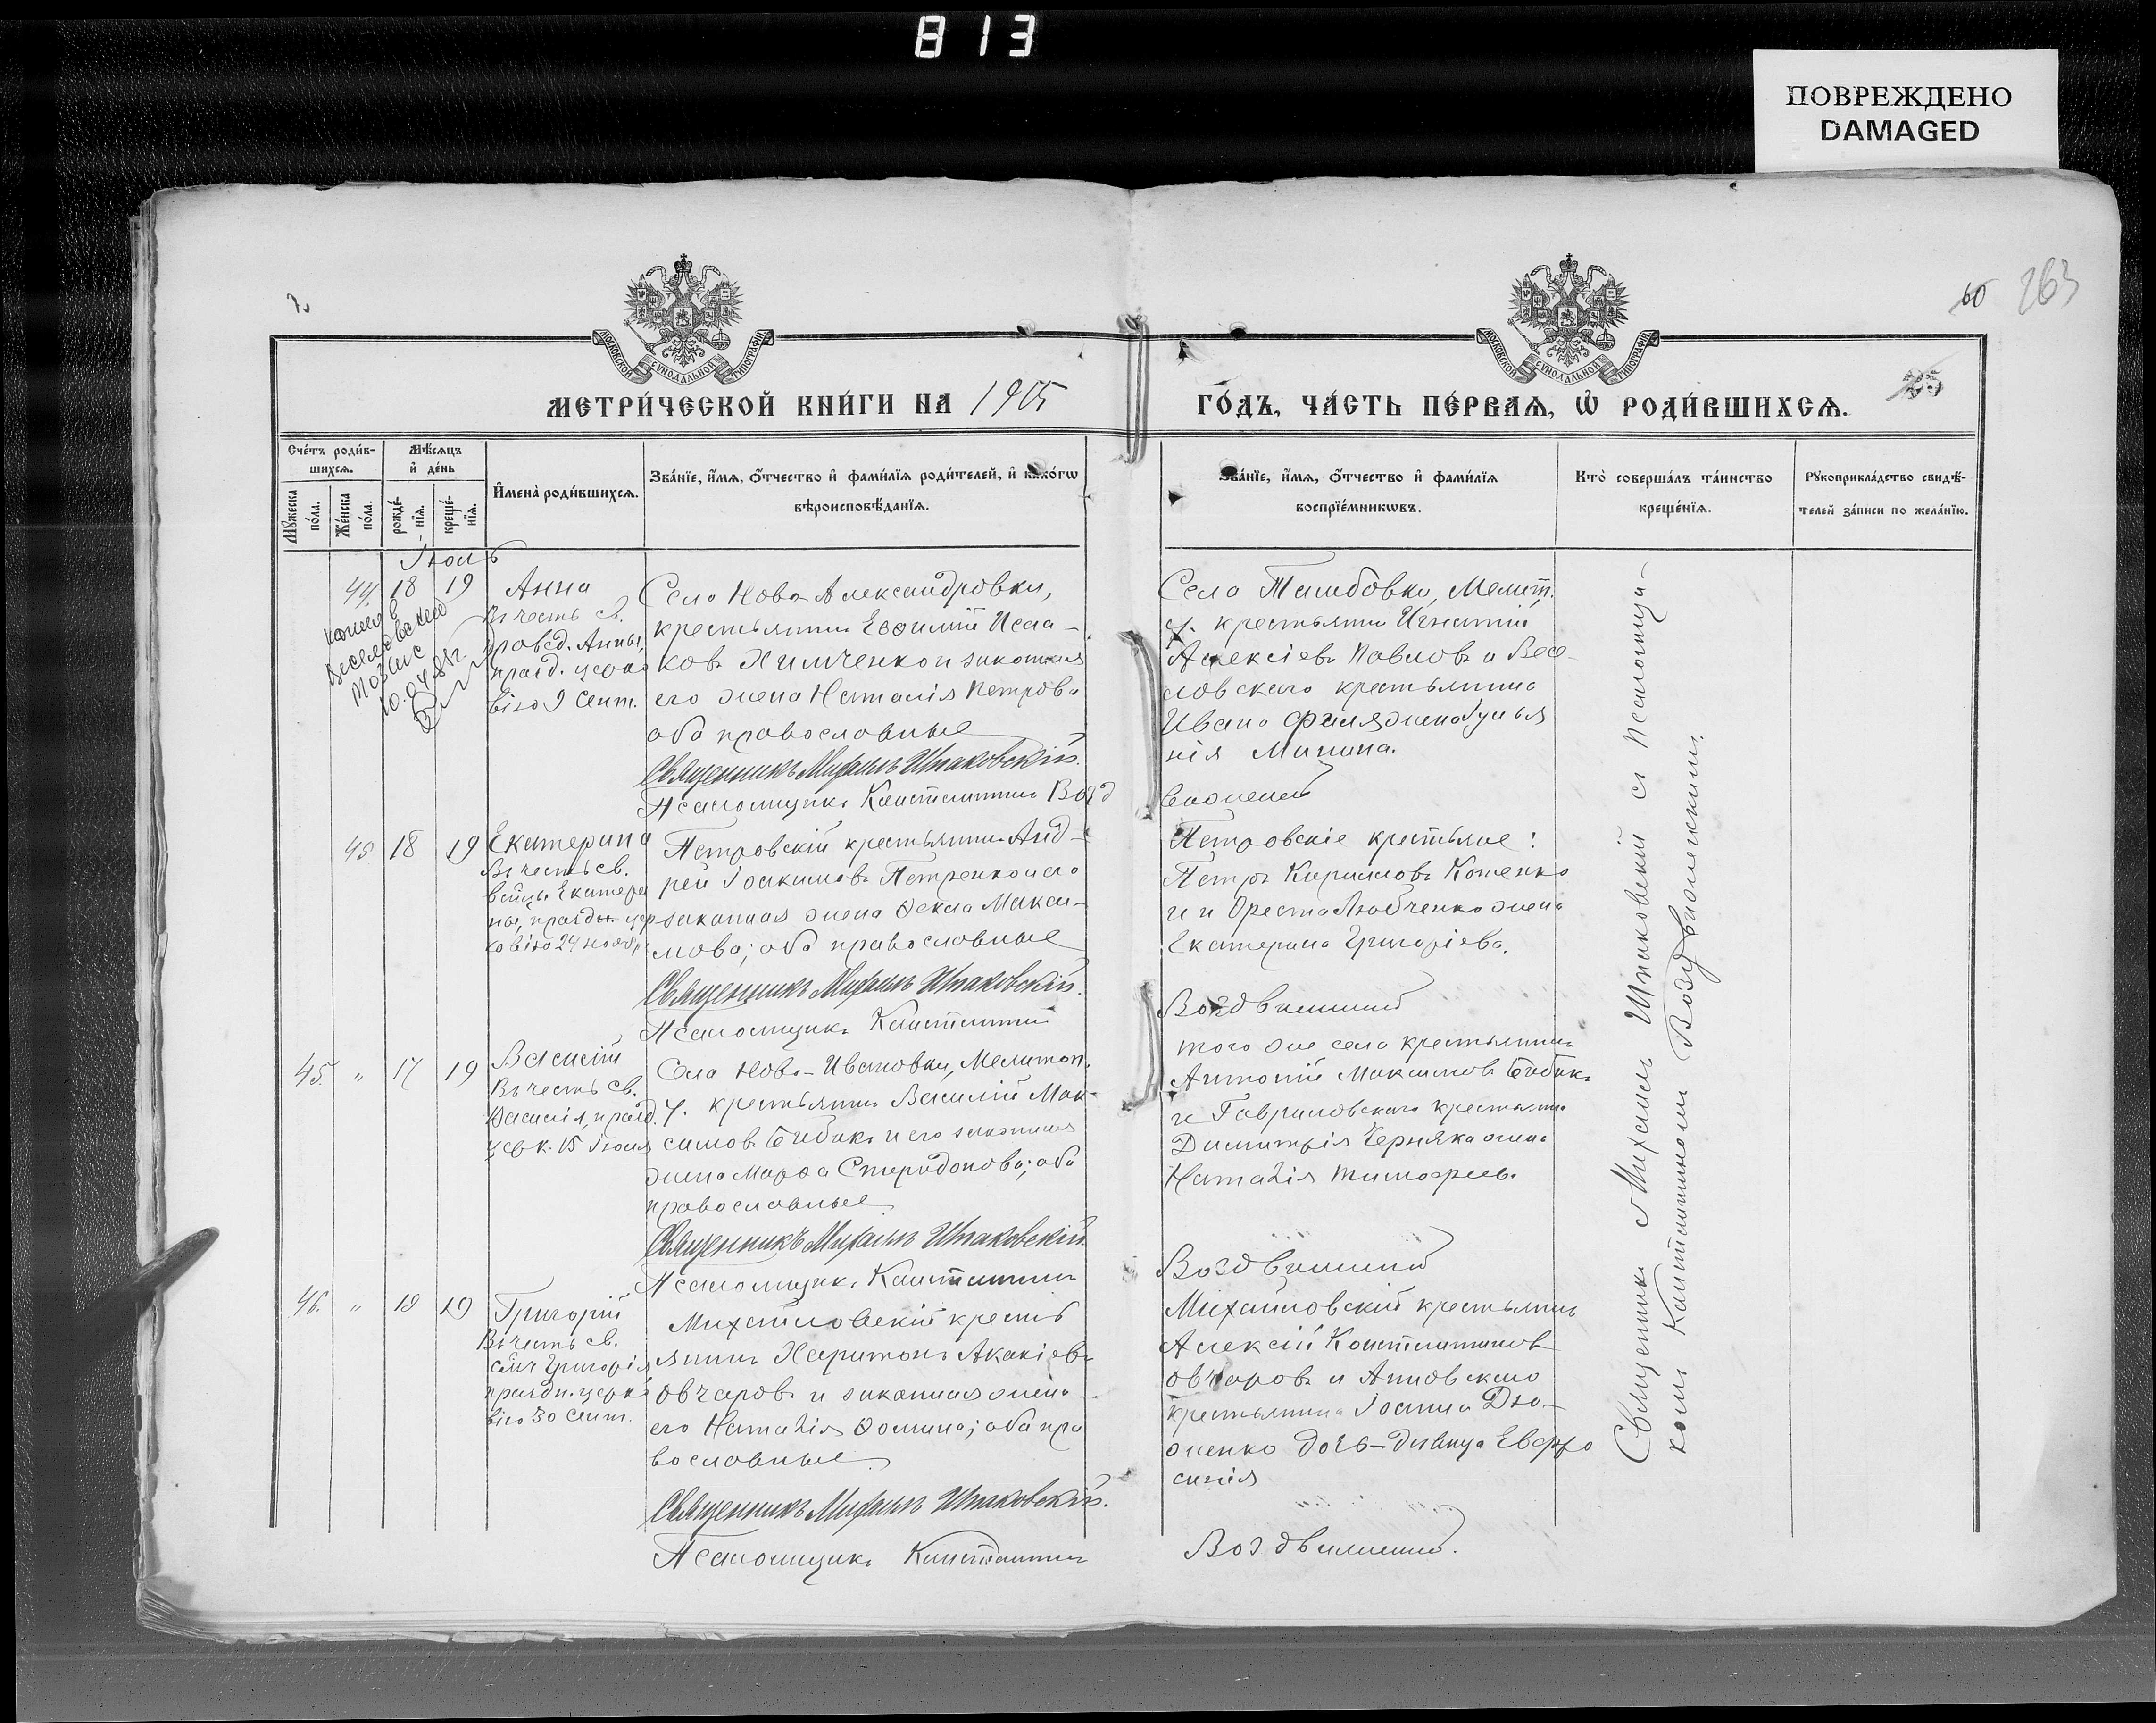 813
ПОВРЕЖДЕНО
DAMAGED
60 263
МОСКОВСКОЙ СѴНОДАЛЬНОЙ ТИПОГРАФІИ
МОСКОВСКОЙ СѴНОДАЛЬНОЙ ТИПОГРАФІИ
МЕТРИ́ЧЕСКОЙ КНИ́ГИ НА 1905
ГО́ДЪ, ЧА́СТЬ ПЕ́РВАѦ, Ѡ҆ РОДИ́ВШИХСѦ.
Сче́тъ роди́в-
шихсѧ.
Мꙋ́жеска по́ла.
Же́нска по́ла.
Мѣ́сѧцъ
и҆ де́нь
рожде́-
нїѧ.
креще́-
нїѧ.
И҆мена̀ роди́вшихсѧ.
Зва́нїе, и҆́мѧ, ѻ҆́тчество и҆ фами́лїѧ роди́телей, и҆ како́гѡ
вѣроисповѣ́данїѧ.
Зва́нїе, и҆́мѧ, ѻ҆́тчество и҆ фами́лїѧ
воспрїе́мникѡвъ.
Кто̀ соверша́лъ та́инство
креще́нїѧ.
Рꙋкоприкла́дство свидѣ́-
телей за́писи по жела́нїю.
Іюль
44. 18 19
копия в
Веселовский
10.04.81г.
Анна
Въ честь св.
правед. Анны,
празд. церко
вію 9 Сент.
Села Ново-Александровки,
крестьянинъ Евѳимій Исаа-
ковъ Химченко и законная
его жена Наталія Петрова
оба православные
Священникъ Михаилъ Шпаковскій.
Псаломщикъ Константинъ Возд
Села Ташбовки, Мелит.
у. крестьянинъ Игнатій
Алексіевъ Павловъ и Весе-
ловскаго крестьянина
Ивана
нія Минина.
виженскій
45 18 19
Екатерина
Въ честь св.
вмцы Екатери
ны, празд. цер
ковію 24 ноябр.
Петровскій крестьянинъ Анд-
рей Іоакимовъ Петренко и его
законная жена Ѳекла Макси-
мова; оба православные
Священникъ Михаилъ Шпаковскій.
Псаломщикъ Константинъ
Петровскіе крестьяне:
Петръ Кириловъ Коженко
и Ореста Любченко жена
Екатерина Григоріева.
Воздвиженскій
45. " 17 19
Василій
Въ честь св.
Василія, празд.
церк. 15 Іюля
Села Ново-Ивановки, Мелитоп.
у. крестьянинъ Василій Мак-
симовъ Бибикъ и его законная
жена Марѳа Спиридонова; оба
православные
Священникъ Михаилъ Шпаковскій.
Псаломщикъ Константинъ
того же села крестьянинъ
Антоній Максимовъ Бибикъ
и Гавриловскаго крестьянина
Димитрія Черняка жена
Наталія Тимофеева.
Воздвиженскій
46. " 19 19
Григорій
Въ честь св.
Григорія
праздн. церко
вію 30 Сент.
Михайловскій кресть
янинъ Харитонъ Акакіевъ
Овчаровъ и законная жена
его Наталія Ѳомина; оба пра
вославные
Священникъ Михаилъ Шпаковскій.
Псаломщикъ Константинъ
Михайловскій крестьянинъ
Алексій Константиновъ
Овчаровъ и Анновскаго
крестьянина Іоанна Дзю-
женко дочь-девица Евфро
синія
Воздвиженскій.
Священникъ Михаилъ Шпаковскій съ Псаломщи-
комъ Константиномъ Воздвиженскимъ.